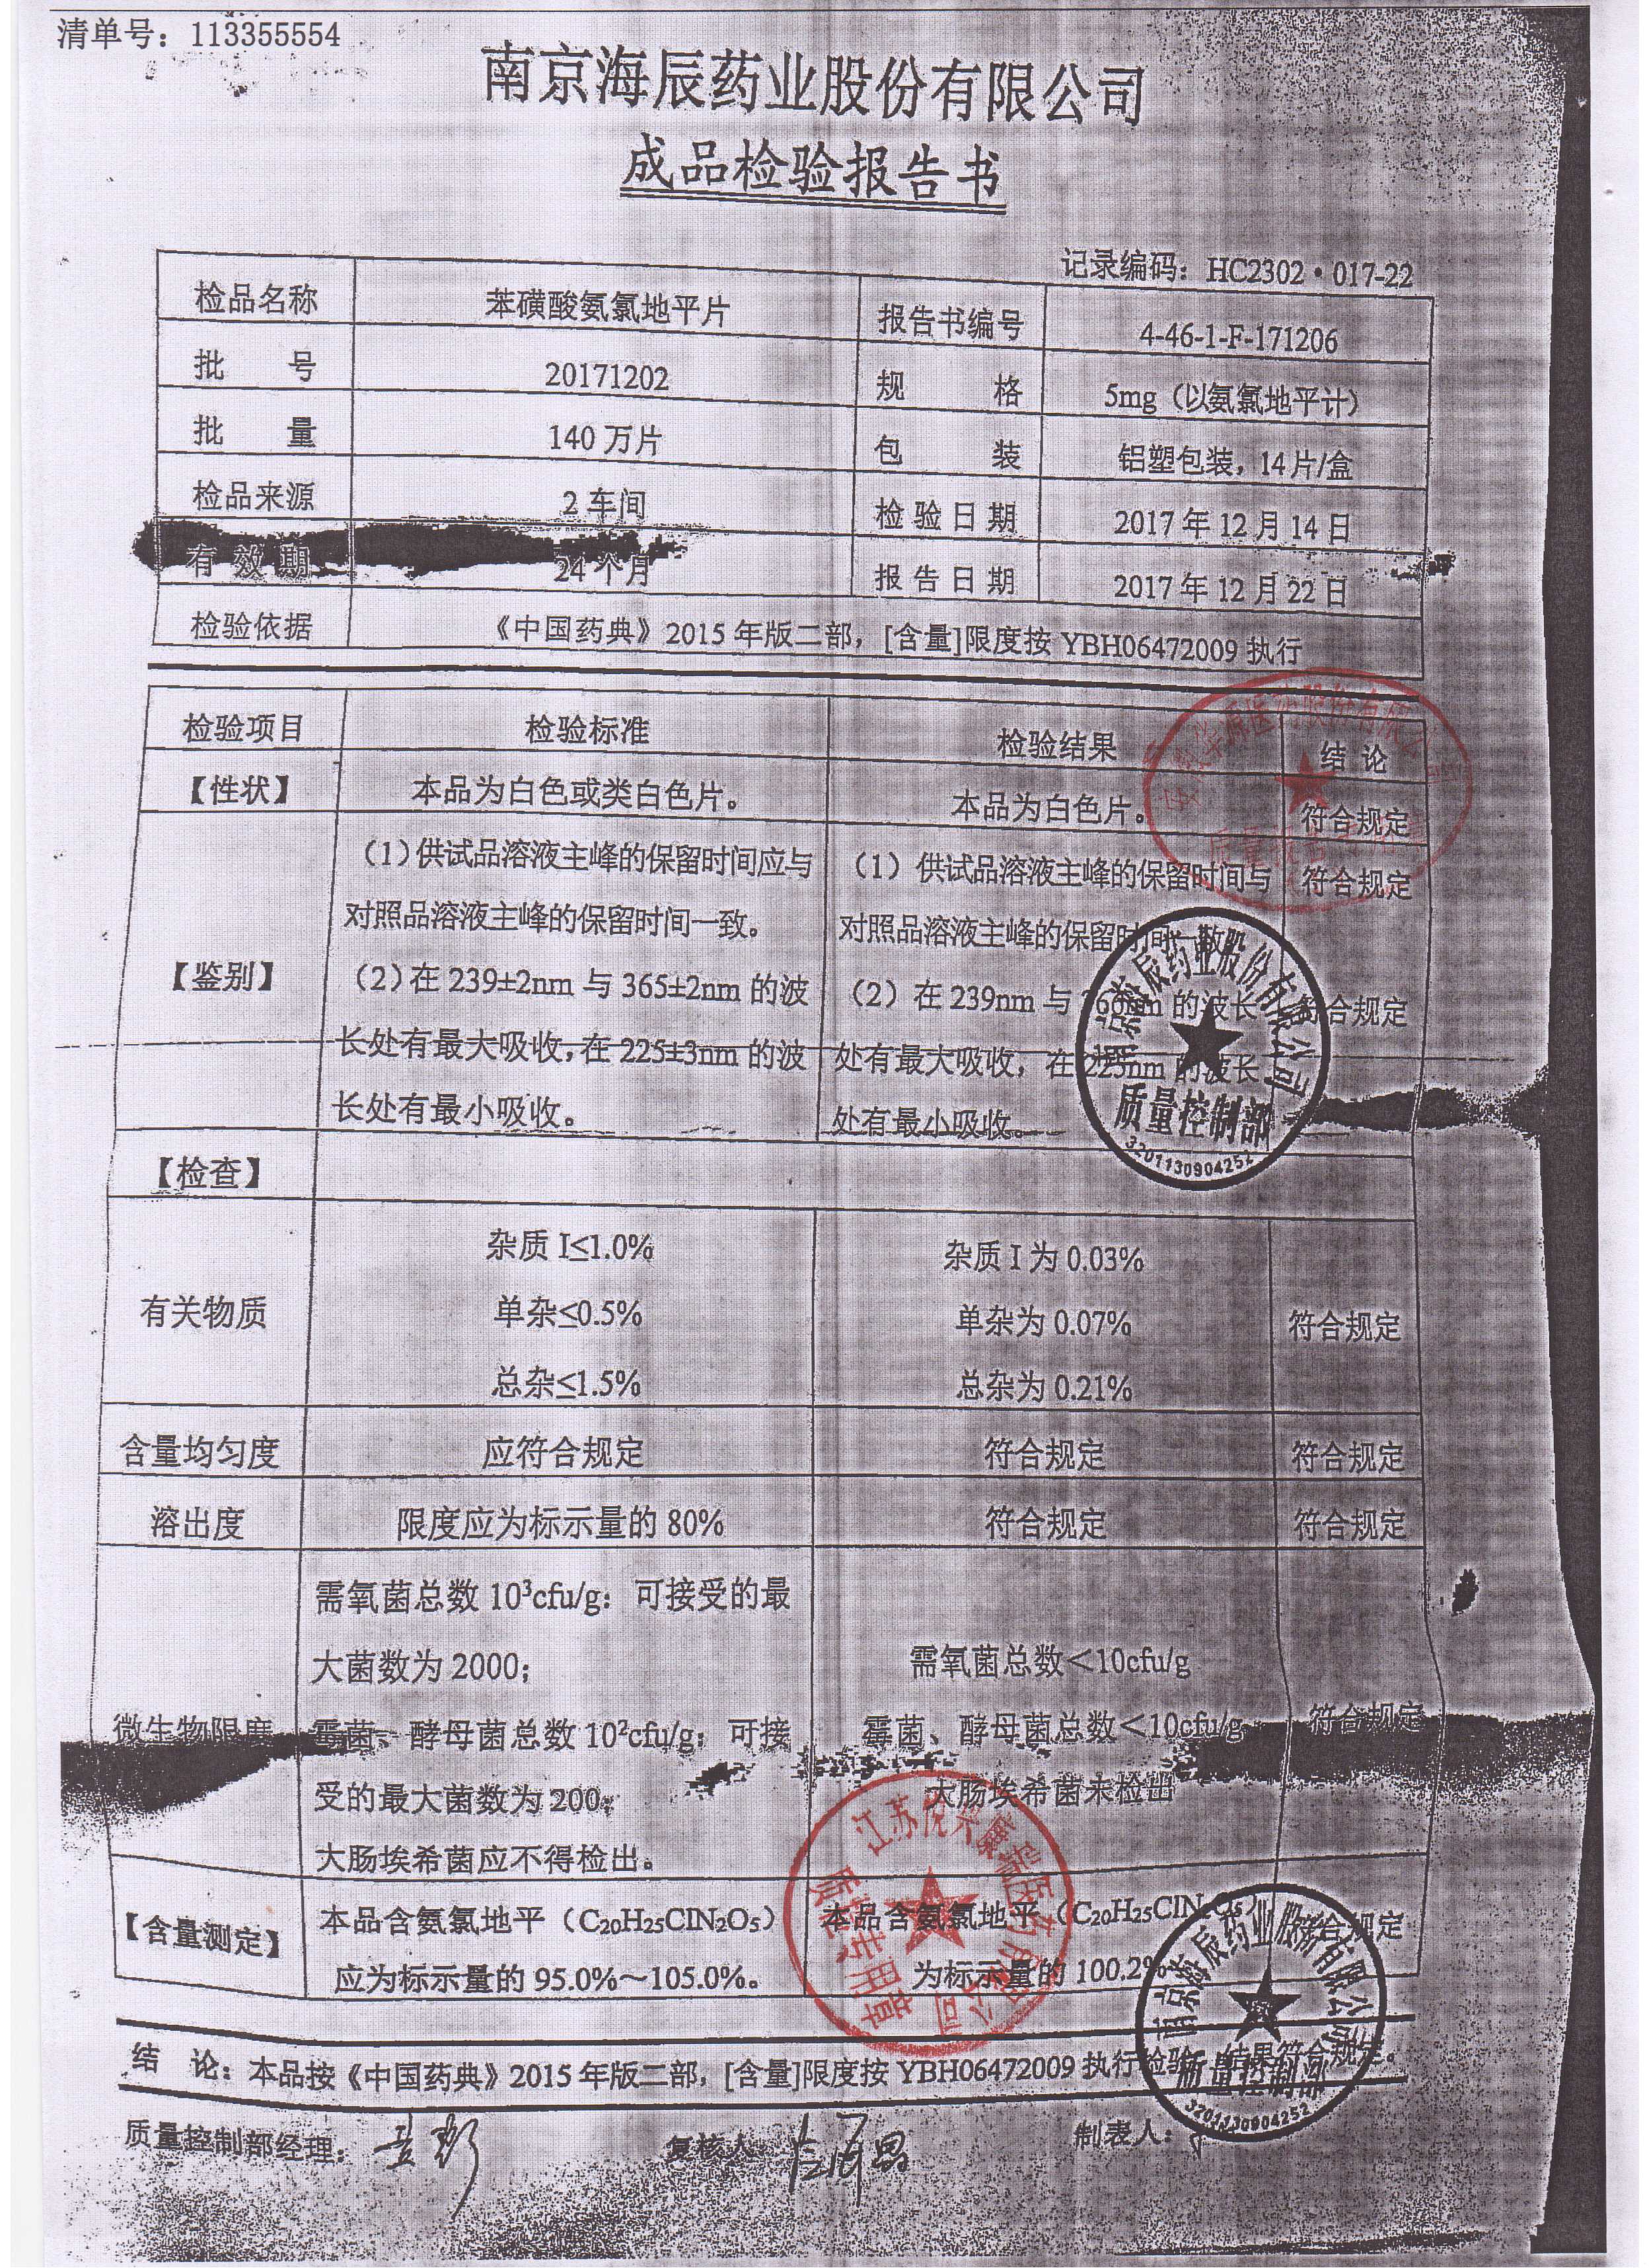 清单号：113355554
南京海辰药业股份有限公司
成品检验报告书
记录编码：HC2302·017-22
检品名称 苯磺酸氨氯地平片 报告书编号 4-46-1-F-171206
批 号 20171202 规 格 5mg（以氨氯地平计）
批 量 140 万片 包 装 铝塑包装，14片/盒
检品来源 2 车间 检验日期 2017 年 12 月 14 日
有效期 24 个月 报告日期 2017 年 12 月 22 日
检验依据 《中国药典》2015 年版二部，[含量]限度按 YBH06472009 执行
检验项目 检验标准 检验结果 结 论
【性状】 本品为白色或类白色片。 本品为白色片。 符合规定
【鉴别】
（1）供试品溶液主峰的保留时间应与
对照品溶液主峰的保留时间一致。
（2）在 239±2nm 与 365±2nm 的波
长处有最大吸收，在 225±3nm 的波
长处有最小吸收。
（1）供试品溶液主峰的保留时间与
对照品溶液主峰的保留时间一致
（2）在 239nm 与 366nm 的波长
处有最大吸收，在 225nm 的波长
处有最小吸收。
符合规定
符合规定
南京海辰药业股份有限公司
质量控制部
3201130904252
【检查】
有关物质
杂质 I≤1.0%
单杂≤0.5%
总杂≤1.5%
杂质 I 为 0.03%
单杂为 0.07%
总杂为 0.21%
符合规定
含量均匀度 应符合规定 符合规定 符合规定
溶出度 限度应为标示量的 80% 符合规定 符合规定
微生物限度
需氧菌总数 10³cfu/g：可接受的最
大菌数为 2000；
霉菌、酵母菌总数 10²cfu/g：可接
受的最大菌数为 200；
大肠埃希菌应不得检出。
需氧菌总数＜10cfu/g
霉菌、酵母菌总数＜10cfu/g
大肠埃希菌未检出
符合规定
【含量测定】
本品含氨氯地平（C₂₀H₂₅ClN₂O₅）
应为标示量的 95.0%～105.0%。
本品含氨氯地平（C₂₀H₂₅ClN₂O₅）
为标示量的 100.2%
符合规定
南京海辰药业股份有限公司
质量控制部
3201130904252
结 论：本品按《中国药典》2015 年版二部，[含量]限度按 YBH06472009 执行检验，结果符合规定。
质量控制部经理： 复核人： 制表人：